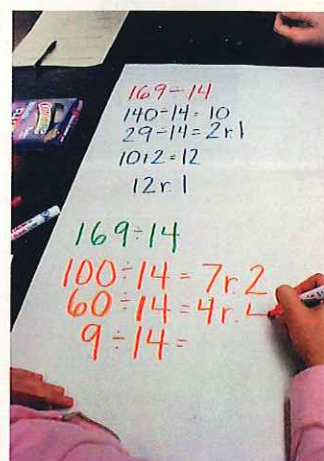 169÷14
140÷14=10
29÷14=2r.1
1012=12
12r.1
169÷14
100÷14=7r.2
60÷14=4r.4
9÷14=